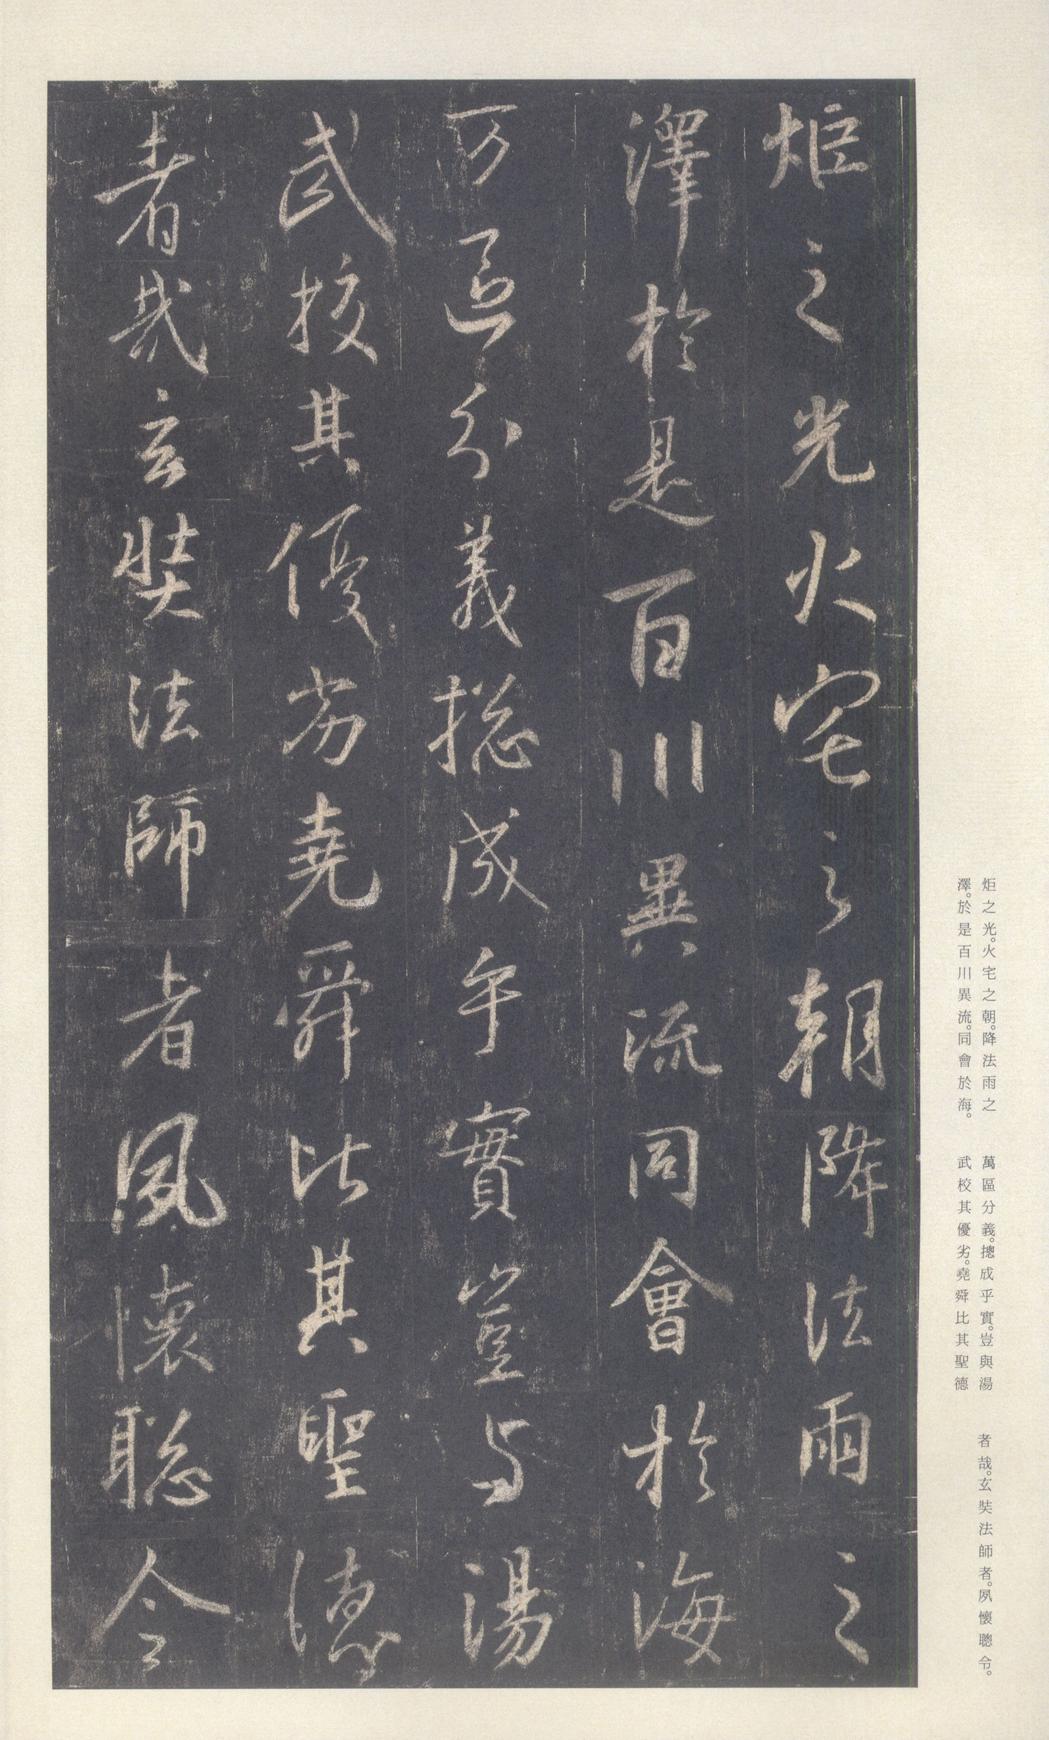 炬之光火宅之朝降法雨之
澤於是百川異流同會於海
万區分義揔成乎實豈与湯
武挍其優劣堯舜比其聖德
者哉玄奘法師者夙懷聡令
炬之光。火宅之朝。降法雨之
澤。於是百川異流。同會於海。
萬區分義。摠成乎實。豈與湯
武校其優劣。堯舜比其聖德
者哉。玄奘法師者。夙懷聰令。